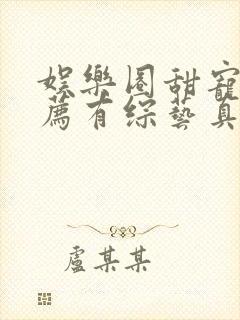 娛樂圈甜寵
薦有綜藝真
盧某某